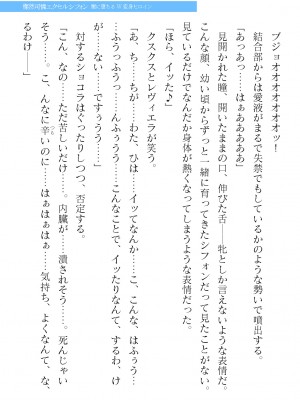 ブジョオオオオオオオオッ！
結合部からは愛液がまるで失禁でもしているかのような勢いで噴出する。
「あっあっ……はぁあああああ」
見開かれた瞳、開いたままの口、伸びた舌――牝としか言えないような表情だ。
こんな顔、幼い頃からずっと一緒に育ってきたシフォンだって見たことがない。
見ているだけでなんだか身体が熱くなってしまうような表情だった。
「ほら、イッた♪」
クスクスとレヴィエラが笑う。
「あ、ち、ちが……わた、ひは……イッてなんか……こ、こんな、はふぅう……
…ふうっふうっ……んふぅうう……こんなことで、イッたりなんて、するわ、け
が……ない……ですぅうう……」
対するショコラはぐったりしつつ、否定する。
「こん、なの……ただ苦しいだけ……。内臓が……潰されそう……。死んじゃい
そう……。こ、こんなに辛いのに……はぁはぁはぁ……気持ち、よくなんて、な、
るわけ……」